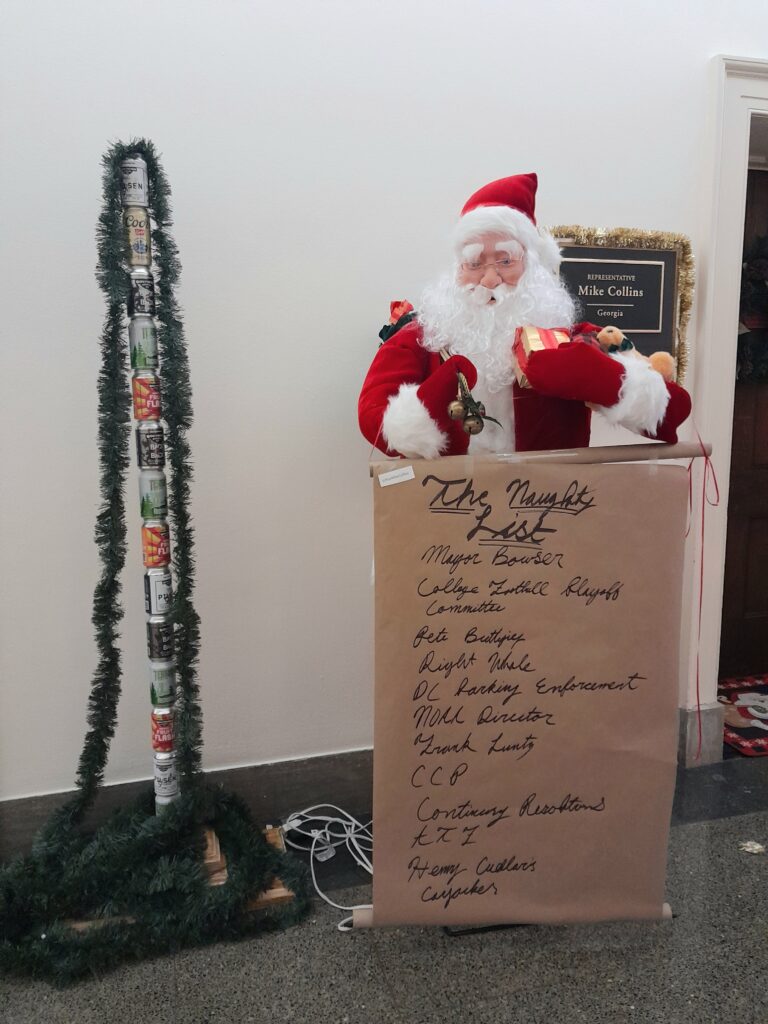 Coors
REPRESENTATIVE
Mike Collins
Georgia
The Naughty
List
Mayor Bowser
College Football Playoff
Committee
Pete Buttigieg
Right Whale
DC Parking Enforcement
NOAA Director
Frank Luntz
CCP
Continuing Resolutions
Henry Cuellar's
Carjackers